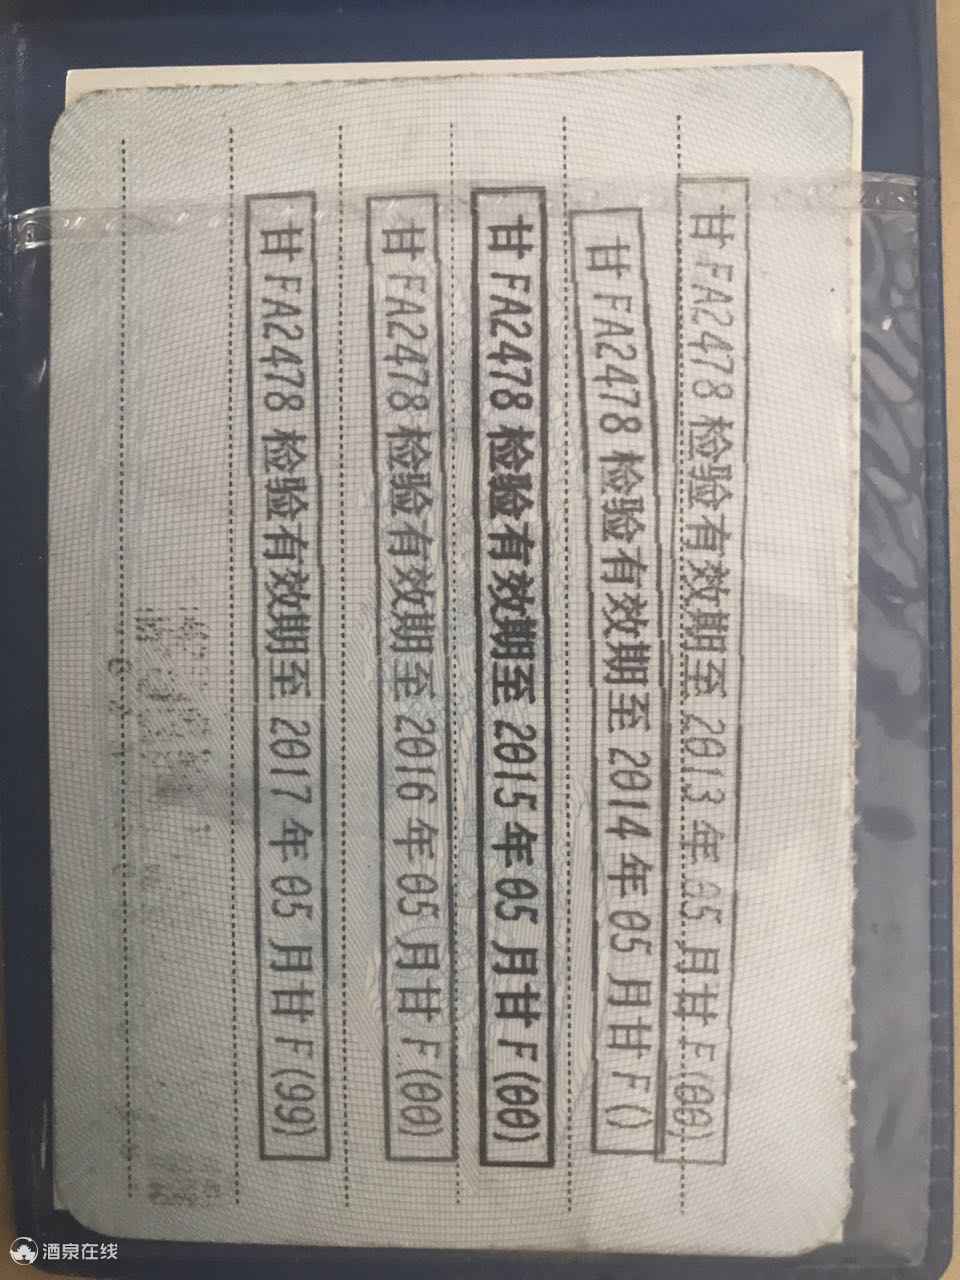 甘FA2478检验有效期至2013年05月甘F(00)
甘FA2478检验有效期至2014年05月甘F()
甘FA2478检验有效期至2015年05月甘F(00)
甘FA2478检验有效期至2016年05月甘F(00)
甘FA2478检验有效期至2017年05月甘F(99)
酒泉在线